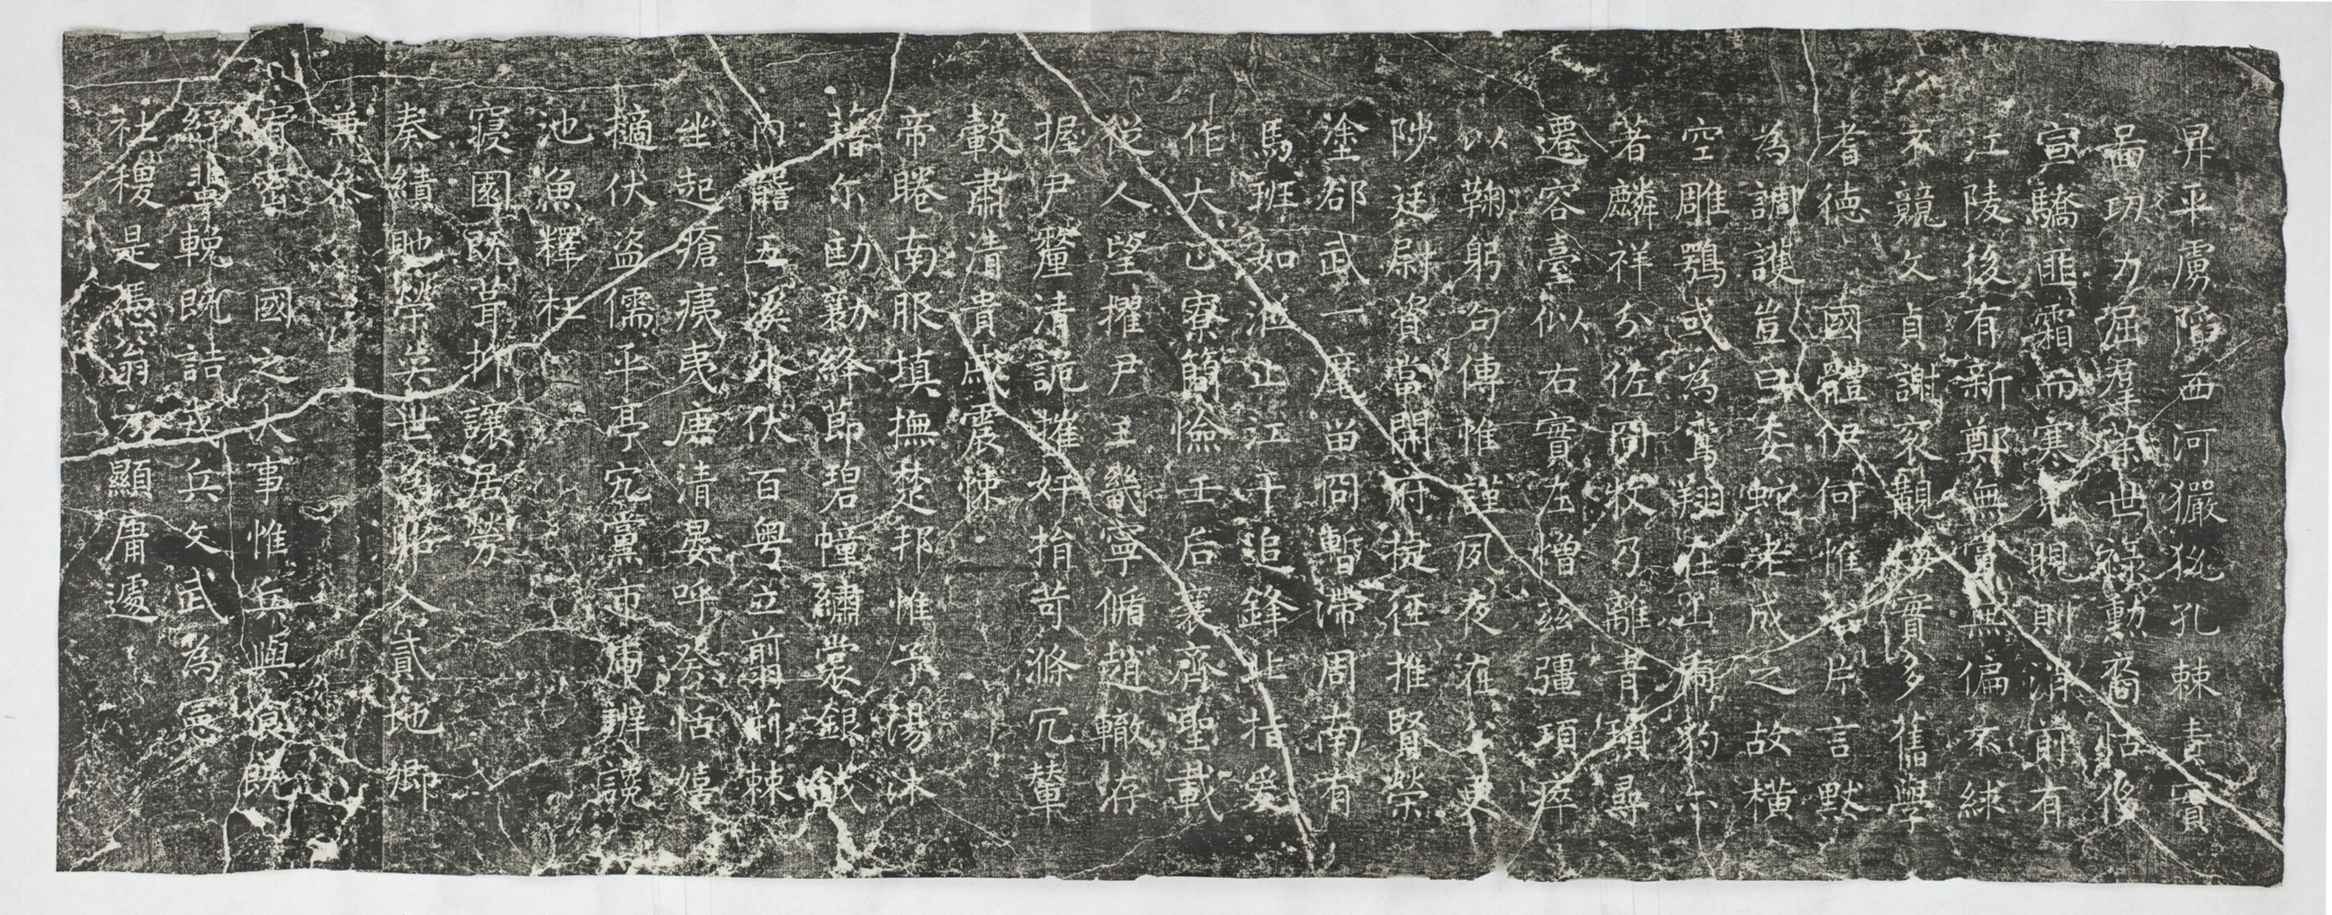 昇平虜陷西河玁狁孔棘責實
勗功力屈羣世祿勳裔怙侈
宣驕匪霜而寒見晛則消前有
江陵後有新鄭無黨無偏不絿
不競文貞謝袞覯實多舊學
耆德國體伊何惟片言默
為調護豈曰委蛇老成之故橫
空雕鶚或為鸞翔在山虎豹亦
著麟祥分佐冏牧乃離眚積尋
遷容臺似右實左憎茲彊項瘁
以鞠躬句傅惟謹夙夜在
陟廷尉資當開府捷徑推賢榮
塗郤武一麾留冏暫滯周南有
馬班如江干追鋒指爰
作大正寮簡憸壬后襄齊聖載
從人望擢尹王畿寧循趙轍存
握尹釐清詭摧奸揃苛滌冗輦
轂肅清貴戚震悚
帝睠南服填撫楚邦惟予湯沐
藉尔劻勷絳節碧幢繡裳銀鉞
內五溪外伏百粵立翦荊棘
坐起瘡痍夷庚清晏呼癸怙嬉
擿伏盜儒平亭宄黨市辨謗
池魚釋枉
寢園既葺抑讓居勞
奏績貤榮矣世人貳地卿
兼參
賓密國之大事惟兵與食既
紓輓既詰戎兵文武為憲
社稷是憑翁方顯庸遽